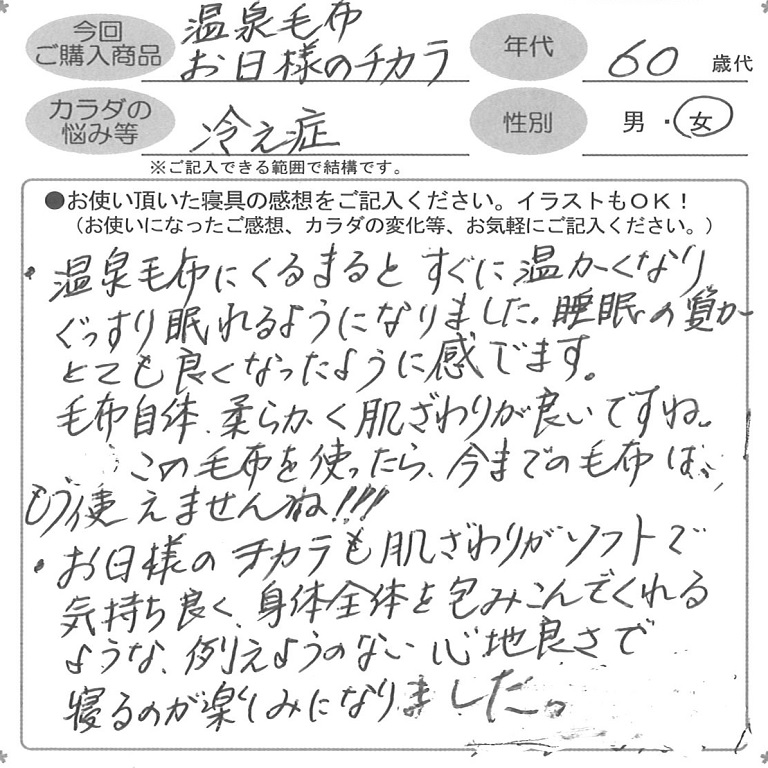 今回
ご購入商品
温泉毛布
お日様のチカラ
年代
60 歳代
カラダの
悩み等
冷え症
性別
男・女
※ご記入できる範囲で結構です。
●お使い頂いた寝具の感想をご記入ください。イラストもOK！
（お使いになったご感想、カラダの変化等、お気軽にご記入ください。）
・温泉毛布にくるまると すぐに 温かくなり
ぐっすり眠れるようになりました。睡眠の質が
とても良くなったように感じます。
毛布自体、柔らかく肌ざわりが良いですね。
この毛布を使ったら、今までの毛布は、
もう使えませんね!!!
・お日様のチカラも肌ざわりがソフトで
気持ち良く、身体全体を包みこんでくれる
ような、例えようのない心地良さで
寝るのが楽しみになりました。